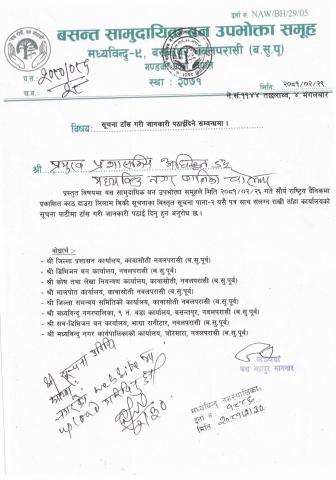 दर्ता नं. NAW/BH/29/05
बसन्त सामुदायिक वन उपभोक्ता समूह
मध्यविन्दु-९, बसन्तपुर, नवलपरासी (ब.सु.पू)
स्था : २०७१
प.सं.
मिति: २०८१/०२/२९
ने.सं.११४४ तछलाथ्व, ४ मंगलबार
विषय: सूचना टाँस गरी जानकारी पठाईदिने सम्बन्धमा ।
श्री प्रमुख प्रशासकीय अधिकृत ज्यू
मध्यविन्दु नगरपालिका चोरमारा
प्रस्तुत विषयमा बस सामुदायिक वन उपभोक्ता समूहले मिति २०८१/०२/२९ गते सौर्य राष्ट्रिय दैनिकमा
प्रकाशित काठ दाउरा लिलाम बिक्री सूचनाका विस्तृत सूचना पाना-२ यसै पत्र साथ संलग्न राखी ताँहा कार्यालयको
सूचना पाटीमा टाँस गरी जानकारी पठाई दिनु हुन अनुरोध छ ।
बोधार्थ :-
- श्री जिल्ला प्रशासन कार्यालय, कावासोती नवलपरासी (ब.सु.पूर्व)
- श्री डिभिजन वन कार्यालय, नवलपरासी (ब.सु.पूर्व)
- श्री कोष तथा लेखा नियन्त्रण कार्यालय, कावासोती, नवलपरासी (ब.सु.पूर्व)
- श्री मालपोत कार्यालय, कावासोती, नवलपरासी (ब.सु.पूर्व)
- श्री जिल्ला समन्वय समितिको कार्यालय, कावासोती, नवलपरासी (ब.सु.पूर्व)
- श्री मध्यविन्दु नगरपालिका, ९ नं. वडा कार्यालय, बसन्तपुर, नवलपरासी (ब.सु.पूर्व)
- श्री सव-डिभिजन वन कार्यालय, भाग्रा रानीटार, नवलपरासी (ब.सु.पूर्व)
- श्री मध्यविन्दु नगर कार्यपालिकाको कार्यालय, चोरमारा, नवलपरासी (ब.सु.पूर्व)
श्री सूचना प्रविधि
website मा
upload
यस बहादुर मानन्धर
मध्यविन्दु नगरपालिका
दर्ता नं.
मिति: २०८१/२/३०